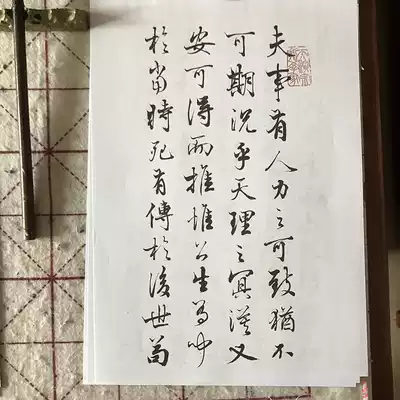 夫事有人力之可致猶不
可期況乎天理之冥漠又
安可得而推惟公生有聞
於當時死有傳於後世苟